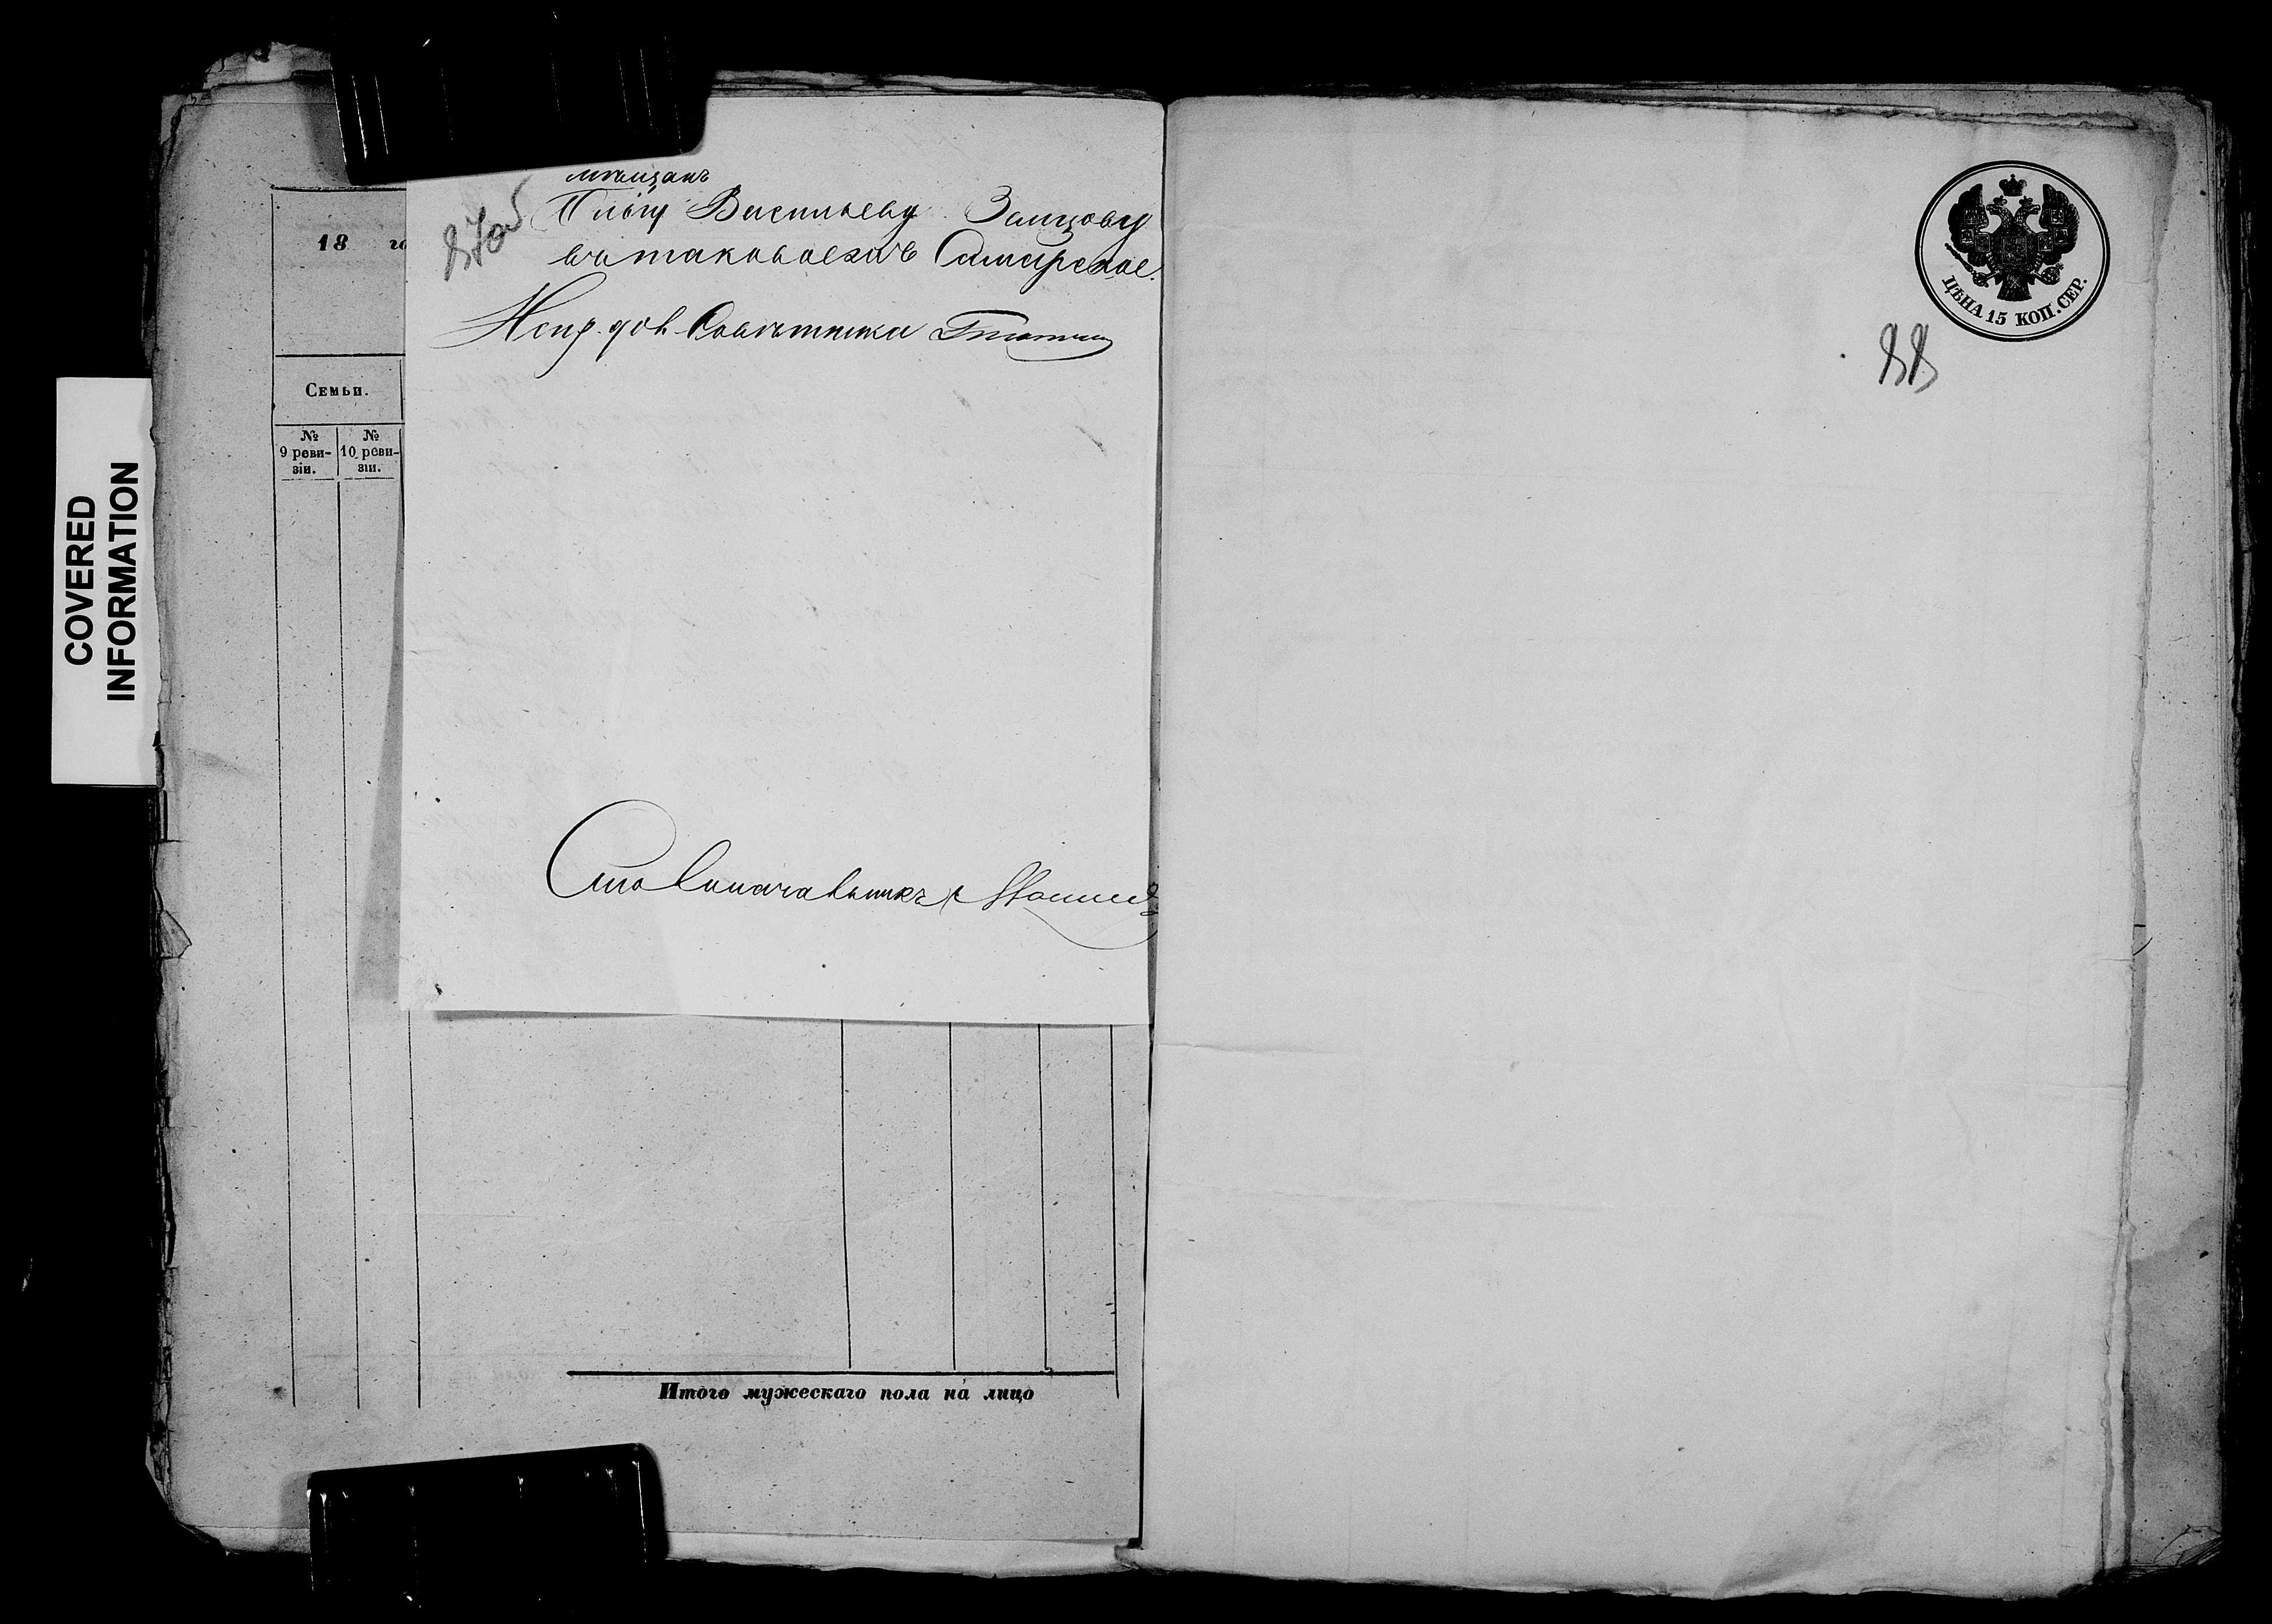 COVERED
INFORMATION
18 го
Семьи.
№ 9 реви-зіи.
№ 10 реви-зіи.
мѣщанъ
87об Васильеву Заицову
Самарское
Непр. дол. Совѣтника
Столоначальникъ
Итого мужескаго пола на лицо
ЦѢНА 15 КОП. СЕР.
88